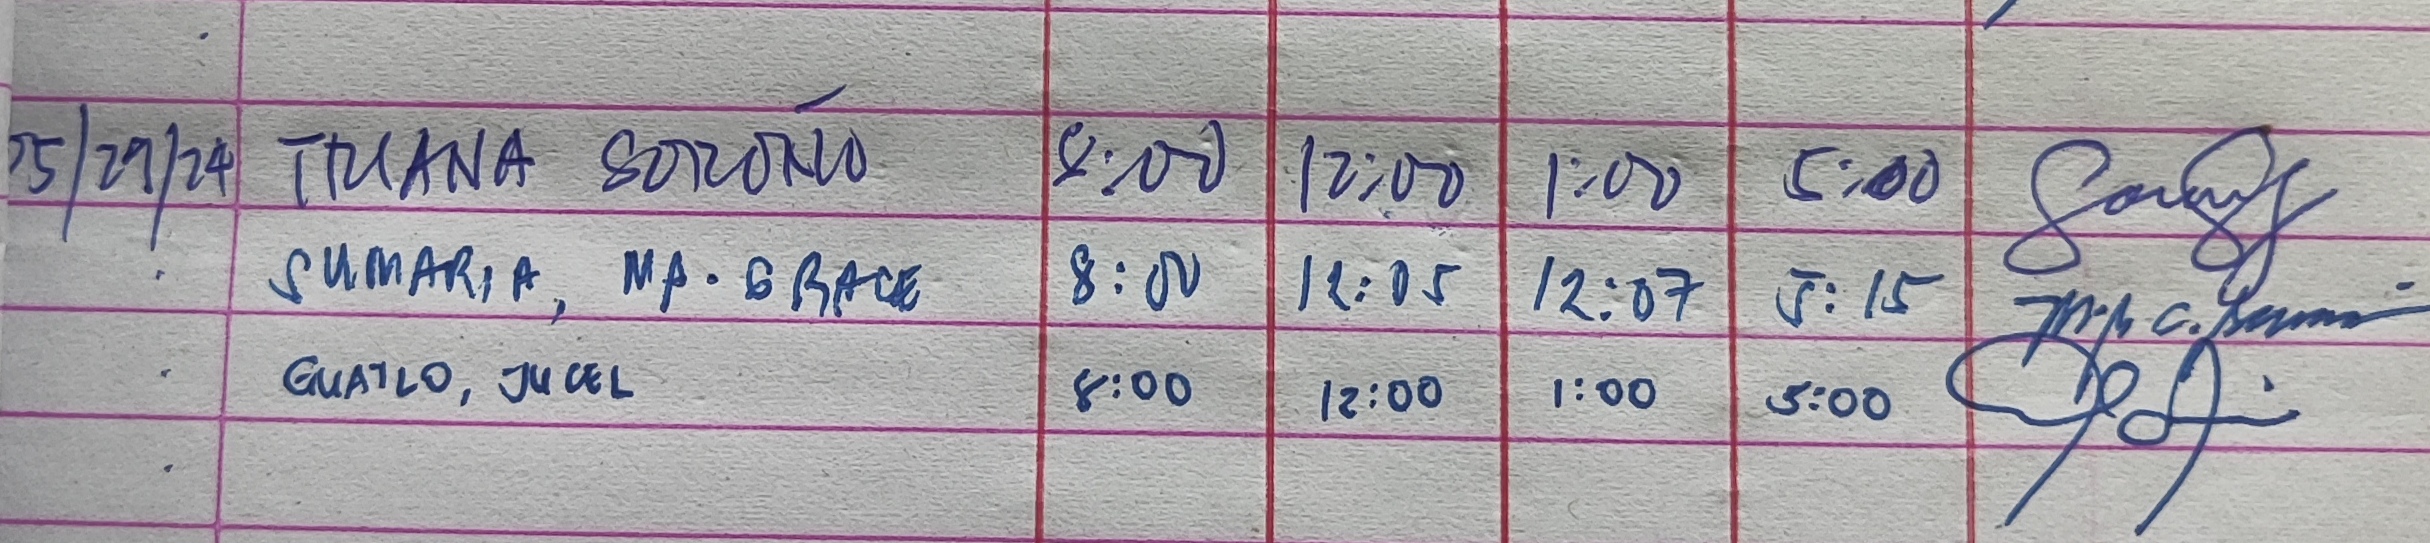 5/29/24 TRIANA SOROÑO 8:00 12:00 1:00 5:00
SUMARIA, MA. GRACE 8:00 12:05 12:07 5:15
GUATLO, JUCEL 8:00 12:00 1:00 5:00